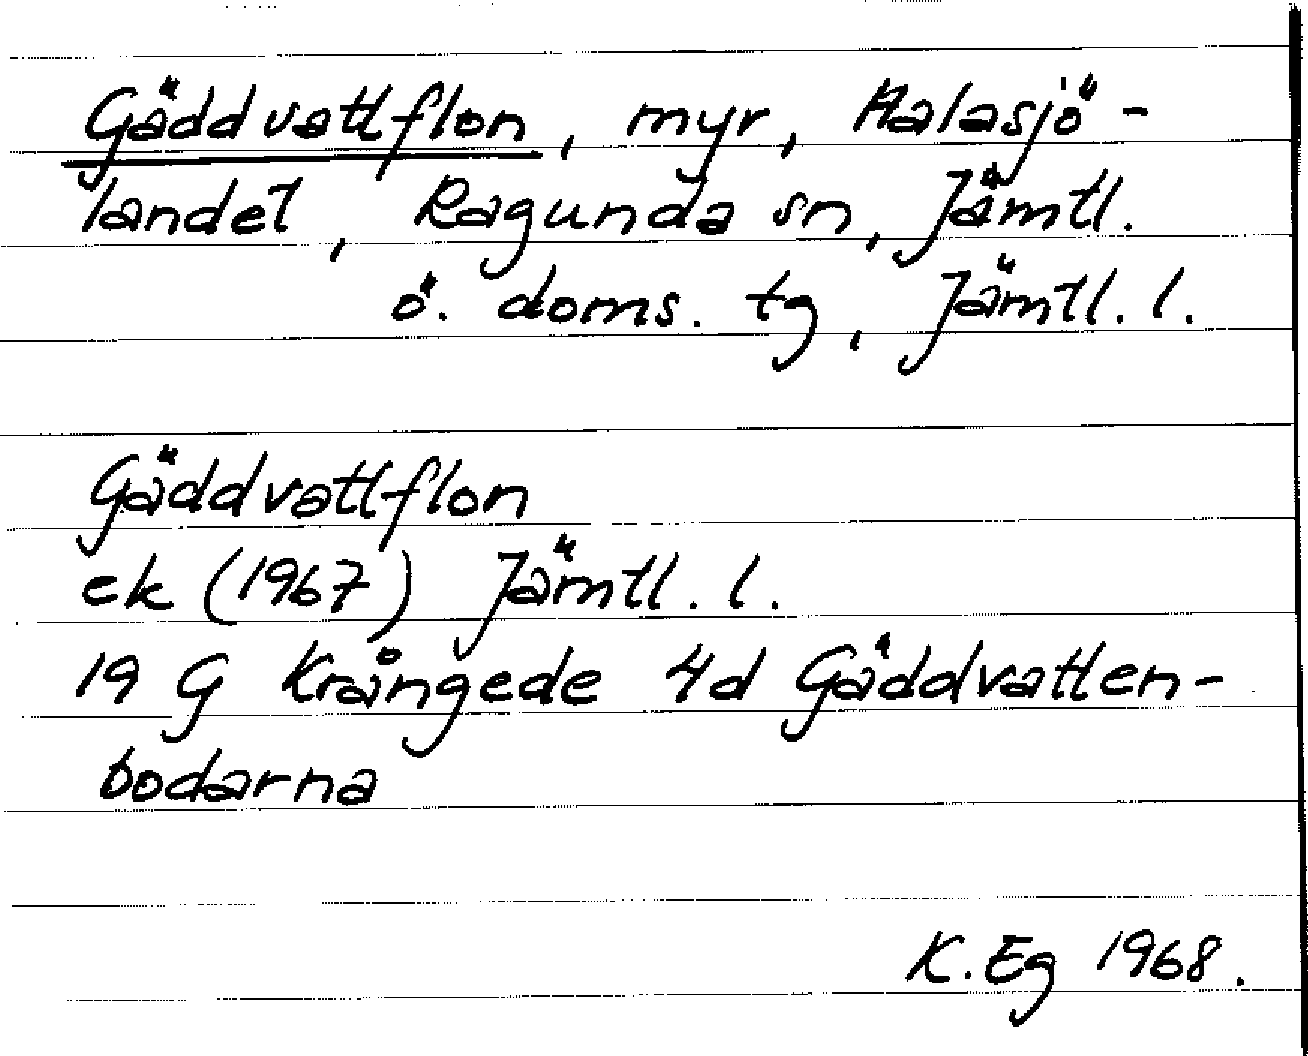 Gäddvattflon, myr, Halasjö-
landet, Ragunda sn, Jämtl.
ö. doms. tg, Jämtl. l.
Gäddvattflon
ek (1967) Jämtl. l.
19 G Krångede 4d Gäddvatten-
bodarna
K. Eg 1968.